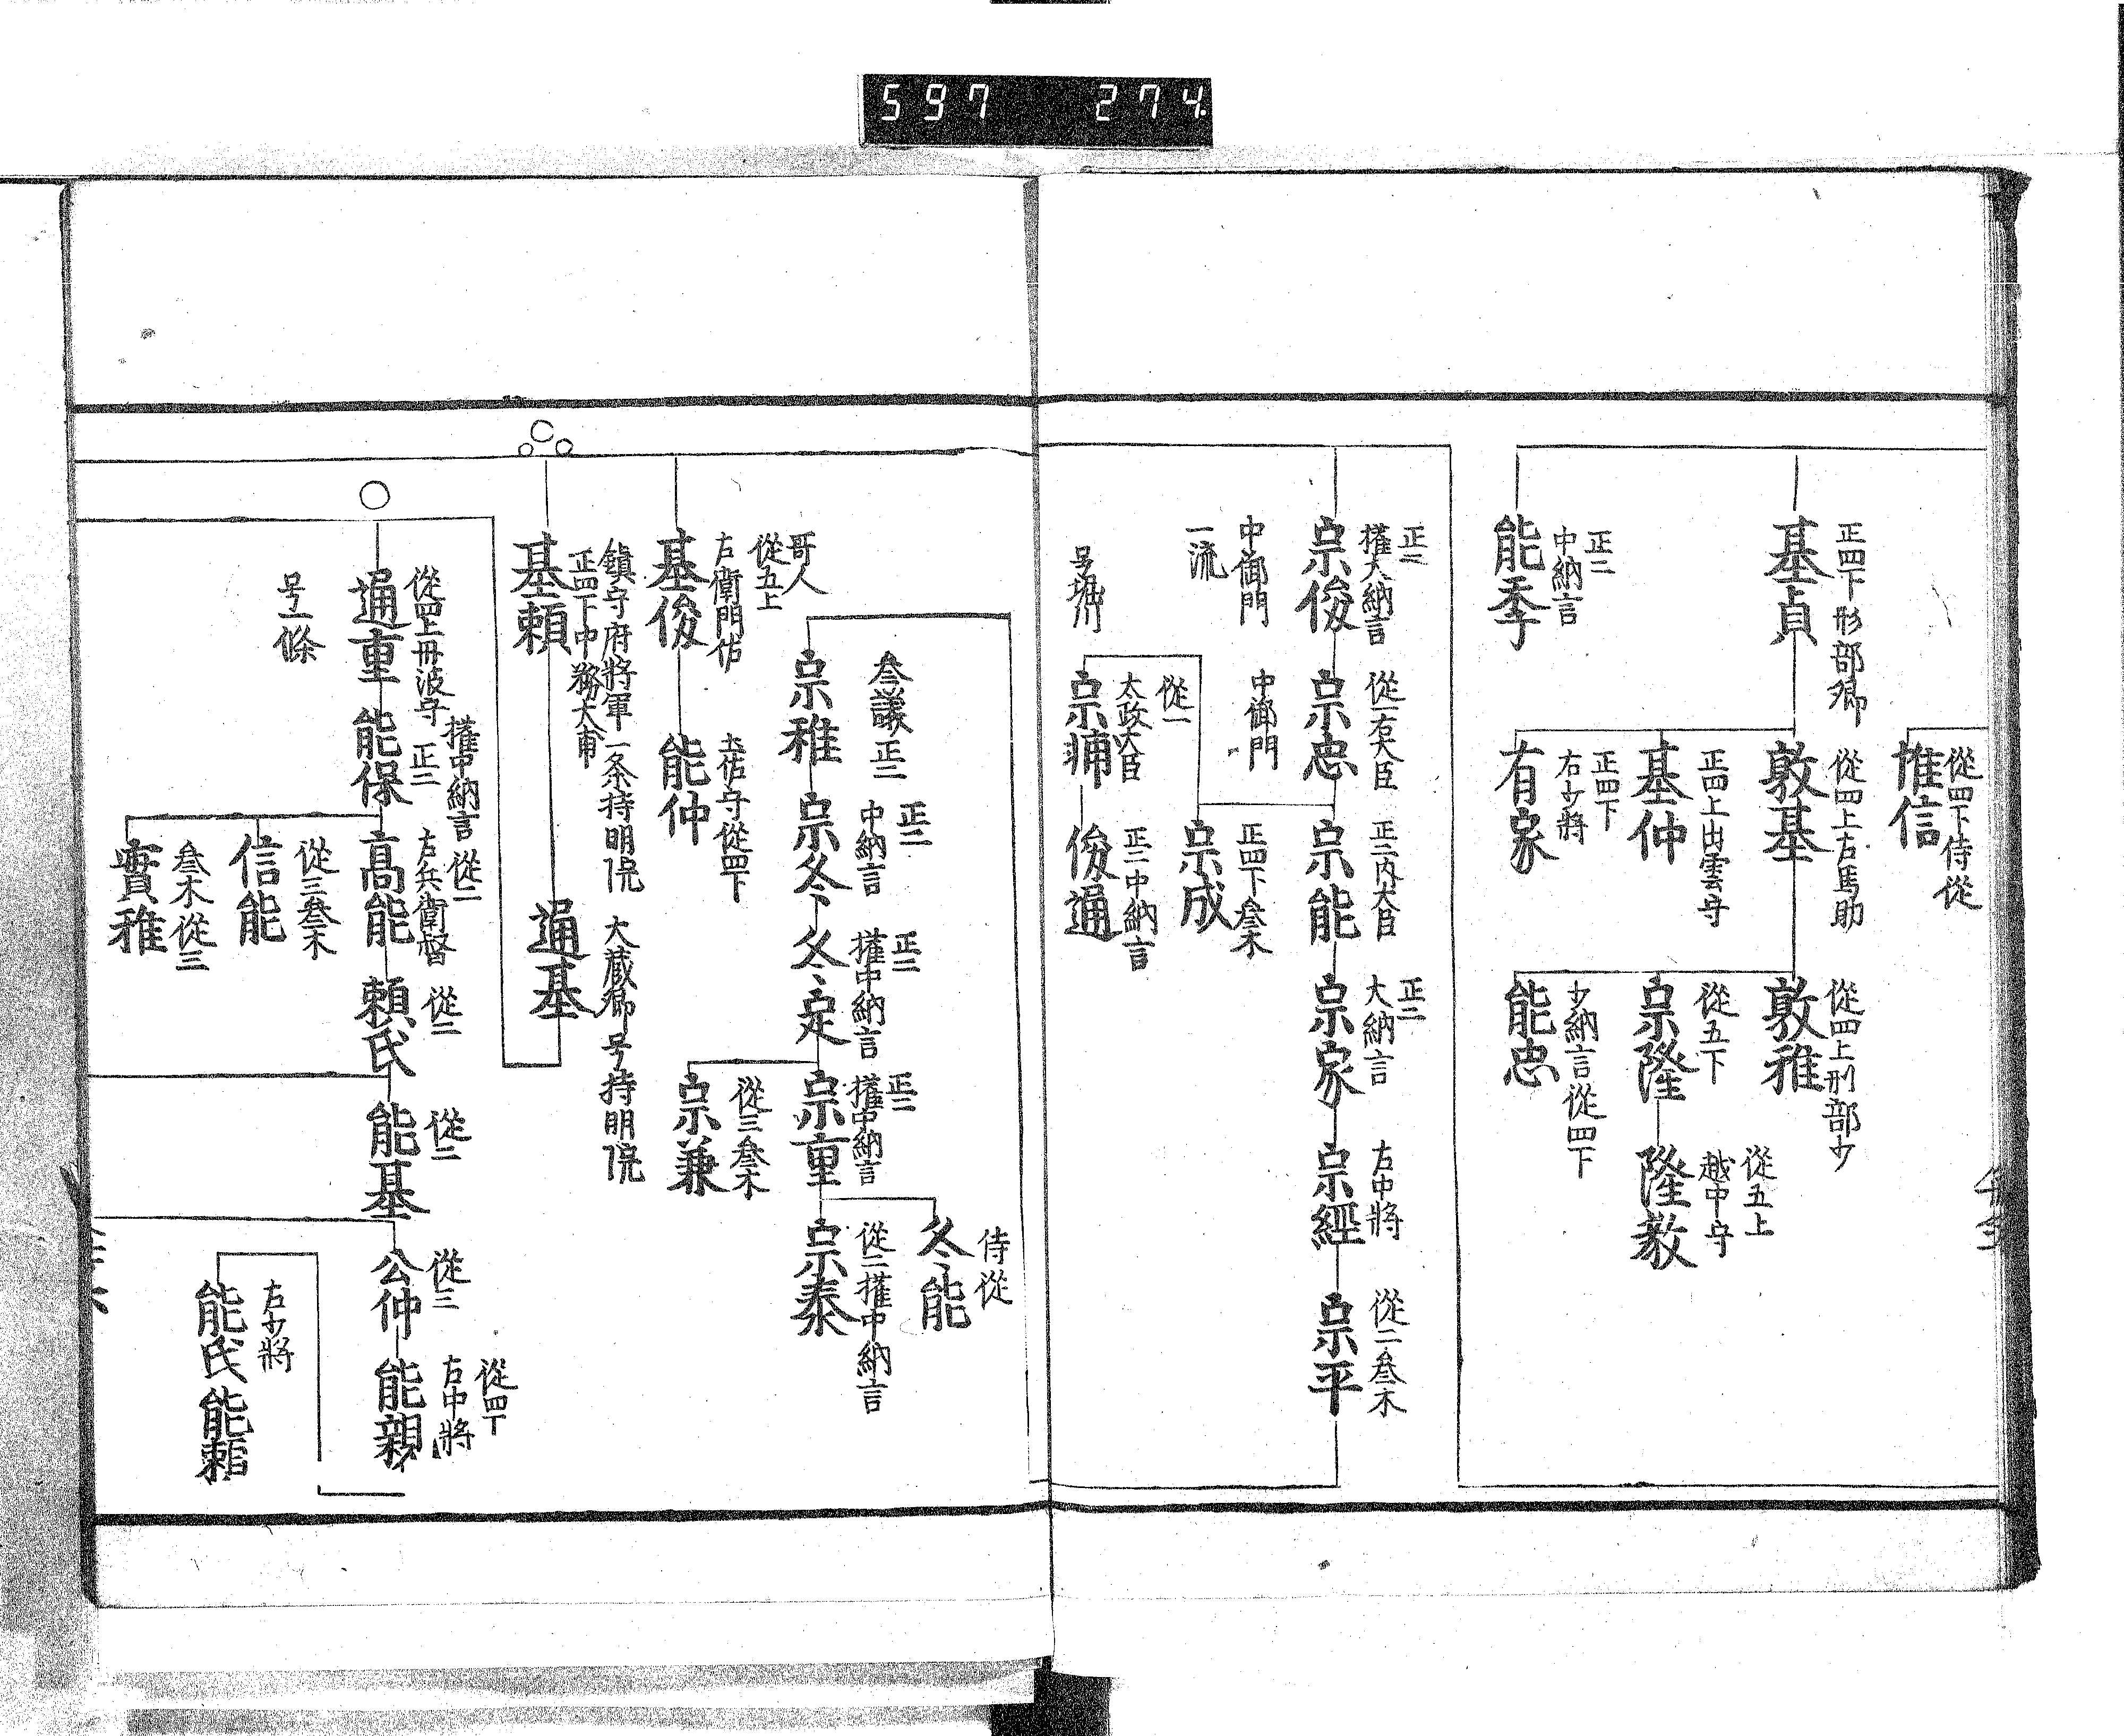 597 274
正四下形部卿
基貞
從四下侍從
惟信
從四上右馬助
敦基
從四上刑部少
敦雅
正四上出雲守
基仲
從五下
宗隆
從五上
越中守
隆教
正四下
右少將
有家
少納言從四下
能忠
正二
中納言
能季
正二
權大納言
宗俊
從一右大臣
宗忠
正二内大臣
宗能
正二
大納言
宗家
右中將
宗經
從二叅木
宗平
中御門
一流
中御門
正四下叅木
宗成
号堀川
從一
太政大臣
宗輔
正二中納言
俊通
叅議正二
宗雅
正二
中納言
宗冬
正二
權中納言
冬定
正二
權中納言
宗重
侍從
冬能
從二權中納言
宗泰
從三叅木
宗兼
哥人
從五上
左衛門佐
基俊
土佐守從四下
能仲
鎭守府將軍一条持明院
正四下中務大甫
基頼
大蔵卿号持明院
通基
從四上丹波守
通重
号一條
權中納言
正二
能保
從二
左兵衛督
高能
從二
頼氏
從二
能基
從三
公仲
從四下
右中將
能親
右少將
能氏
能頼
從三叅木
信能
叅木從三
實雅